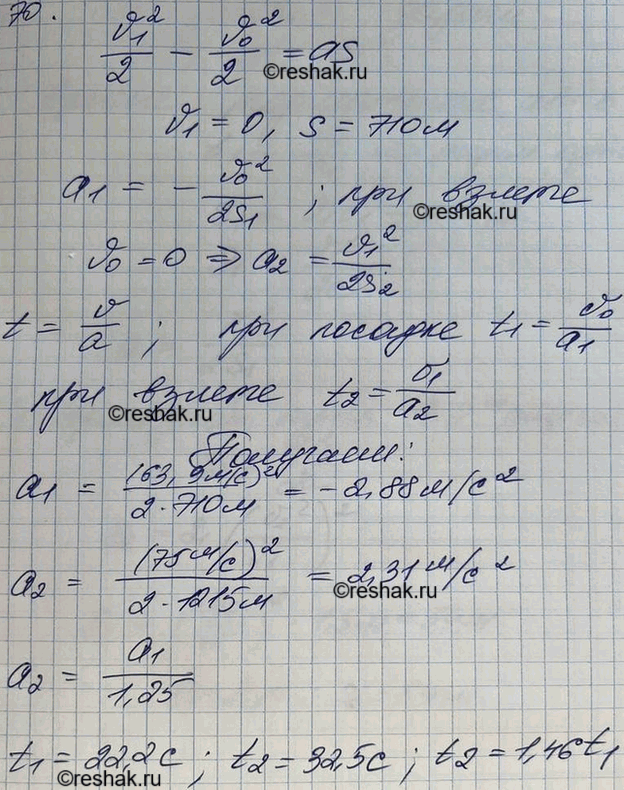 70.
v₁²/2 - v₀²/2 = as
©reshak.ru
v₁ = 0, s = 710м
a₁ = - v₀²/2s₁ ; при взлете
©reshak.ru
v₀ = 0 ⇒ a₂ = v₁²/2s₂
t = v/a ; при посадке t₁ = v₀/a₁
при взлете t₂ = v₁/a₂
©reshak.ru
Получаем:
a₁ = (63,9м/с)²/2·710м = -2,88м/с²
©reshak.ru
a₂ = (75м/с)²/2·1215м = 2,31м/с²
©reshak.ru
a₂ = a₁/1,25
t₁ = 22,2с ; t₂ = 32,5с ; t₂ = 1,46t₁
©reshak.ru